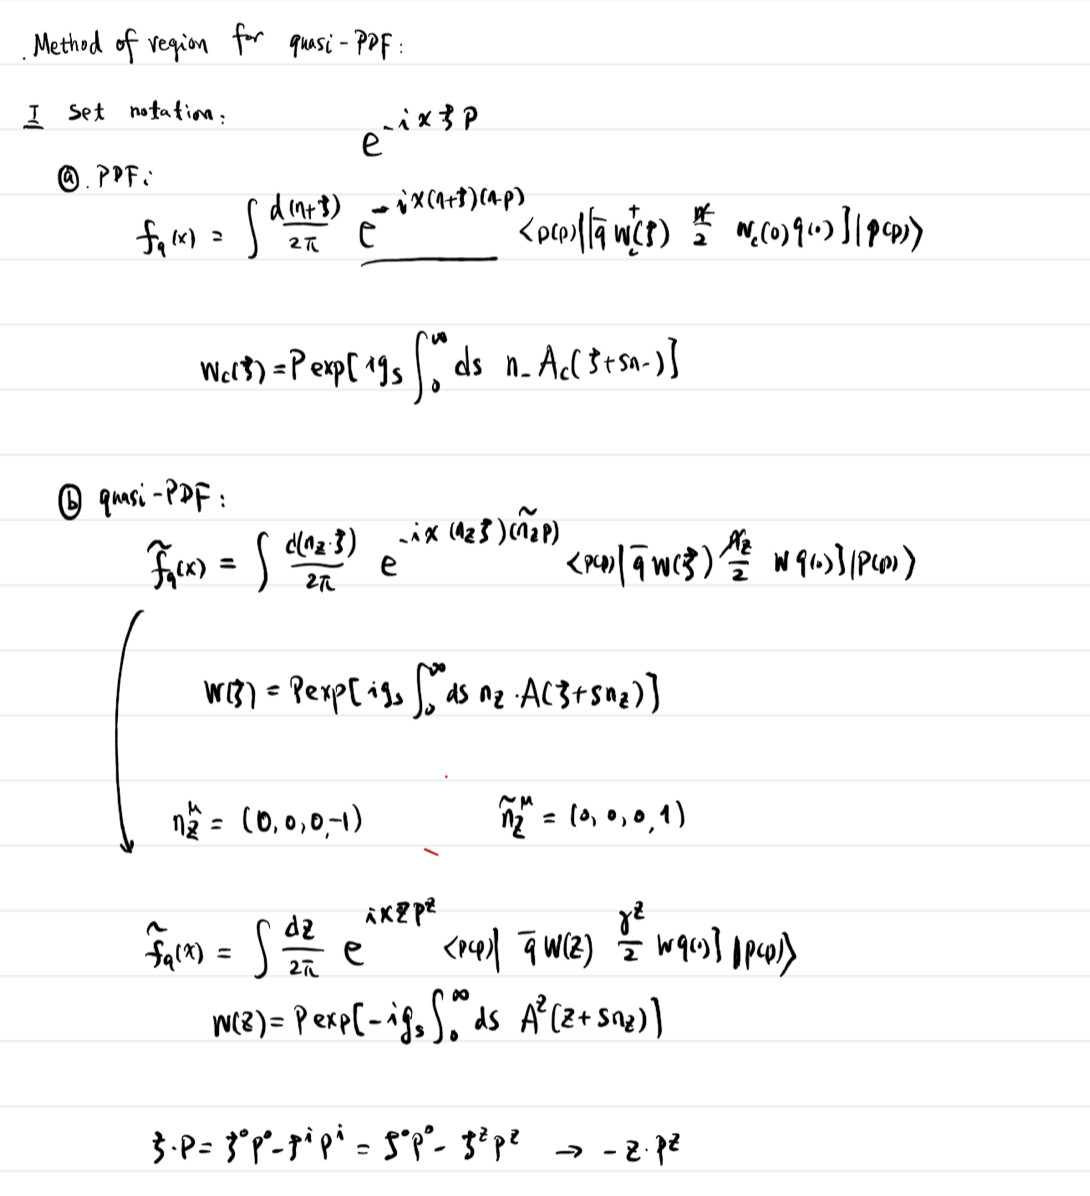 . Method of region for quasi-PDF:
I Set notation:
e^{-ixξP}
ⓐ. PDF:
f_q(x) = ∫ d(n+ξ)/2π e^{-ix(n+ξ)(n-p)} <p(p)|[q̄ W_c^†(ξ) n̸/2 W_c(0)q(0)]|p(p)>
W_c(ξ) = P exp[ig_s ∫_0^∞ ds n_- A_c(ξ+sn-)]
ⓑ quasi-PDF:
f̃_q(x) = ∫ d(n_z·ξ)/2π e^{-ix(n_zξ)(ñ_zp)} <p(p)|q̄ W(ξ) n̸_z/2 W q(0)]|P(p)>
W(ξ) = Pexp[ig_s ∫_0^∞ ds n_z·A(ξ+sn_z)]
n_z^μ = (0,0,0,-1) ñ_z^μ = (0,0,0,1)
f̃_q(x) = ∫ dz/2π e^{ixzp^z} <p(p)| q̄ W(z) γ^z/2 W q(0)] |p(p)>
W(z) = P exp[-ig_s ∫_0^∞ ds A^z(z+sn_z)]
ξ·P = ξ^0p^0 - ξ^ip^i = ξ^0p^0 - ξ^zp^z → -z·p^z